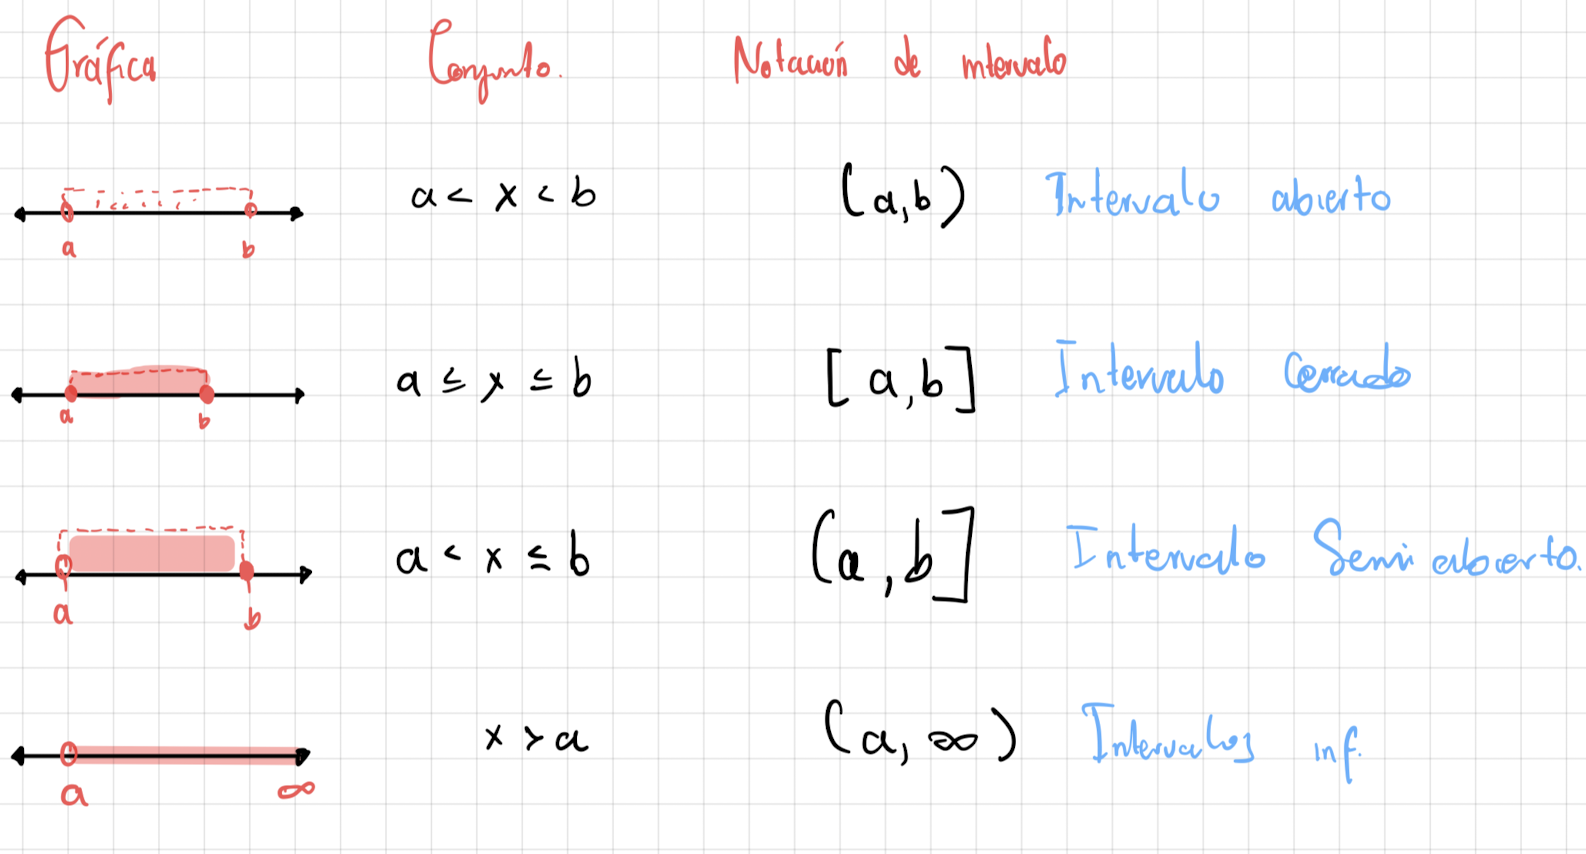 Gráfica Conjunto. Notación de intervalo
a < x < b (a,b) Intervalo abierto
a b
a ≤ x ≤ b [a,b] Intervalo Cerrado
a b
a < x ≤ b (a,b] Intervalo Semi abierto.
a b
x > a (a, ∞) Intervalos inf.
a ∞